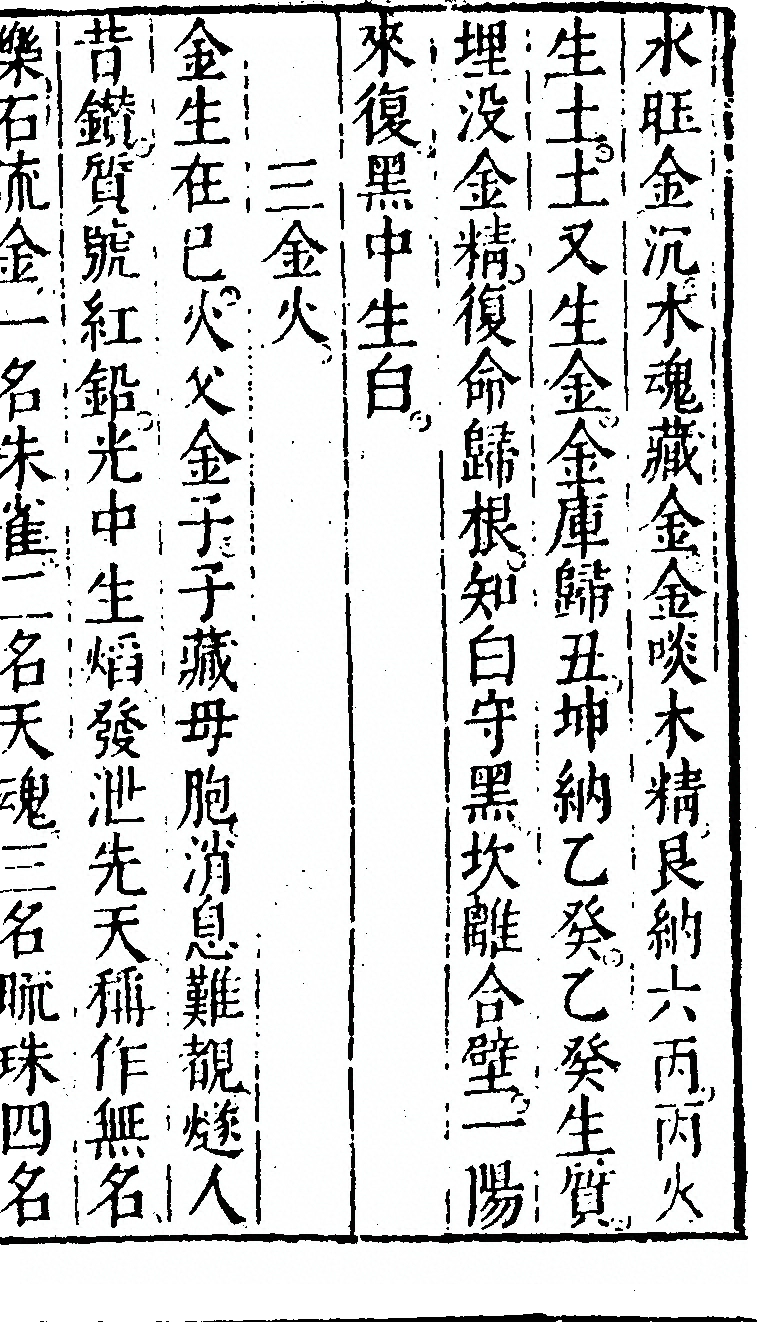 水旺金沉木魂藏金金啖木精艮納六丙丙火
生土土又生金金庫歸丑坤納乙癸乙癸生質
埋没金精復命歸根知白守黑坎離合壁一陽
來復黑中生白
三金火
金生在巳火父金子子藏母胞消息難覩燧人
昔鑽質號紅鉛光中生熖發泄先天稱作無名
樂石流金一名朱雀二名天魂三名硫珠四名